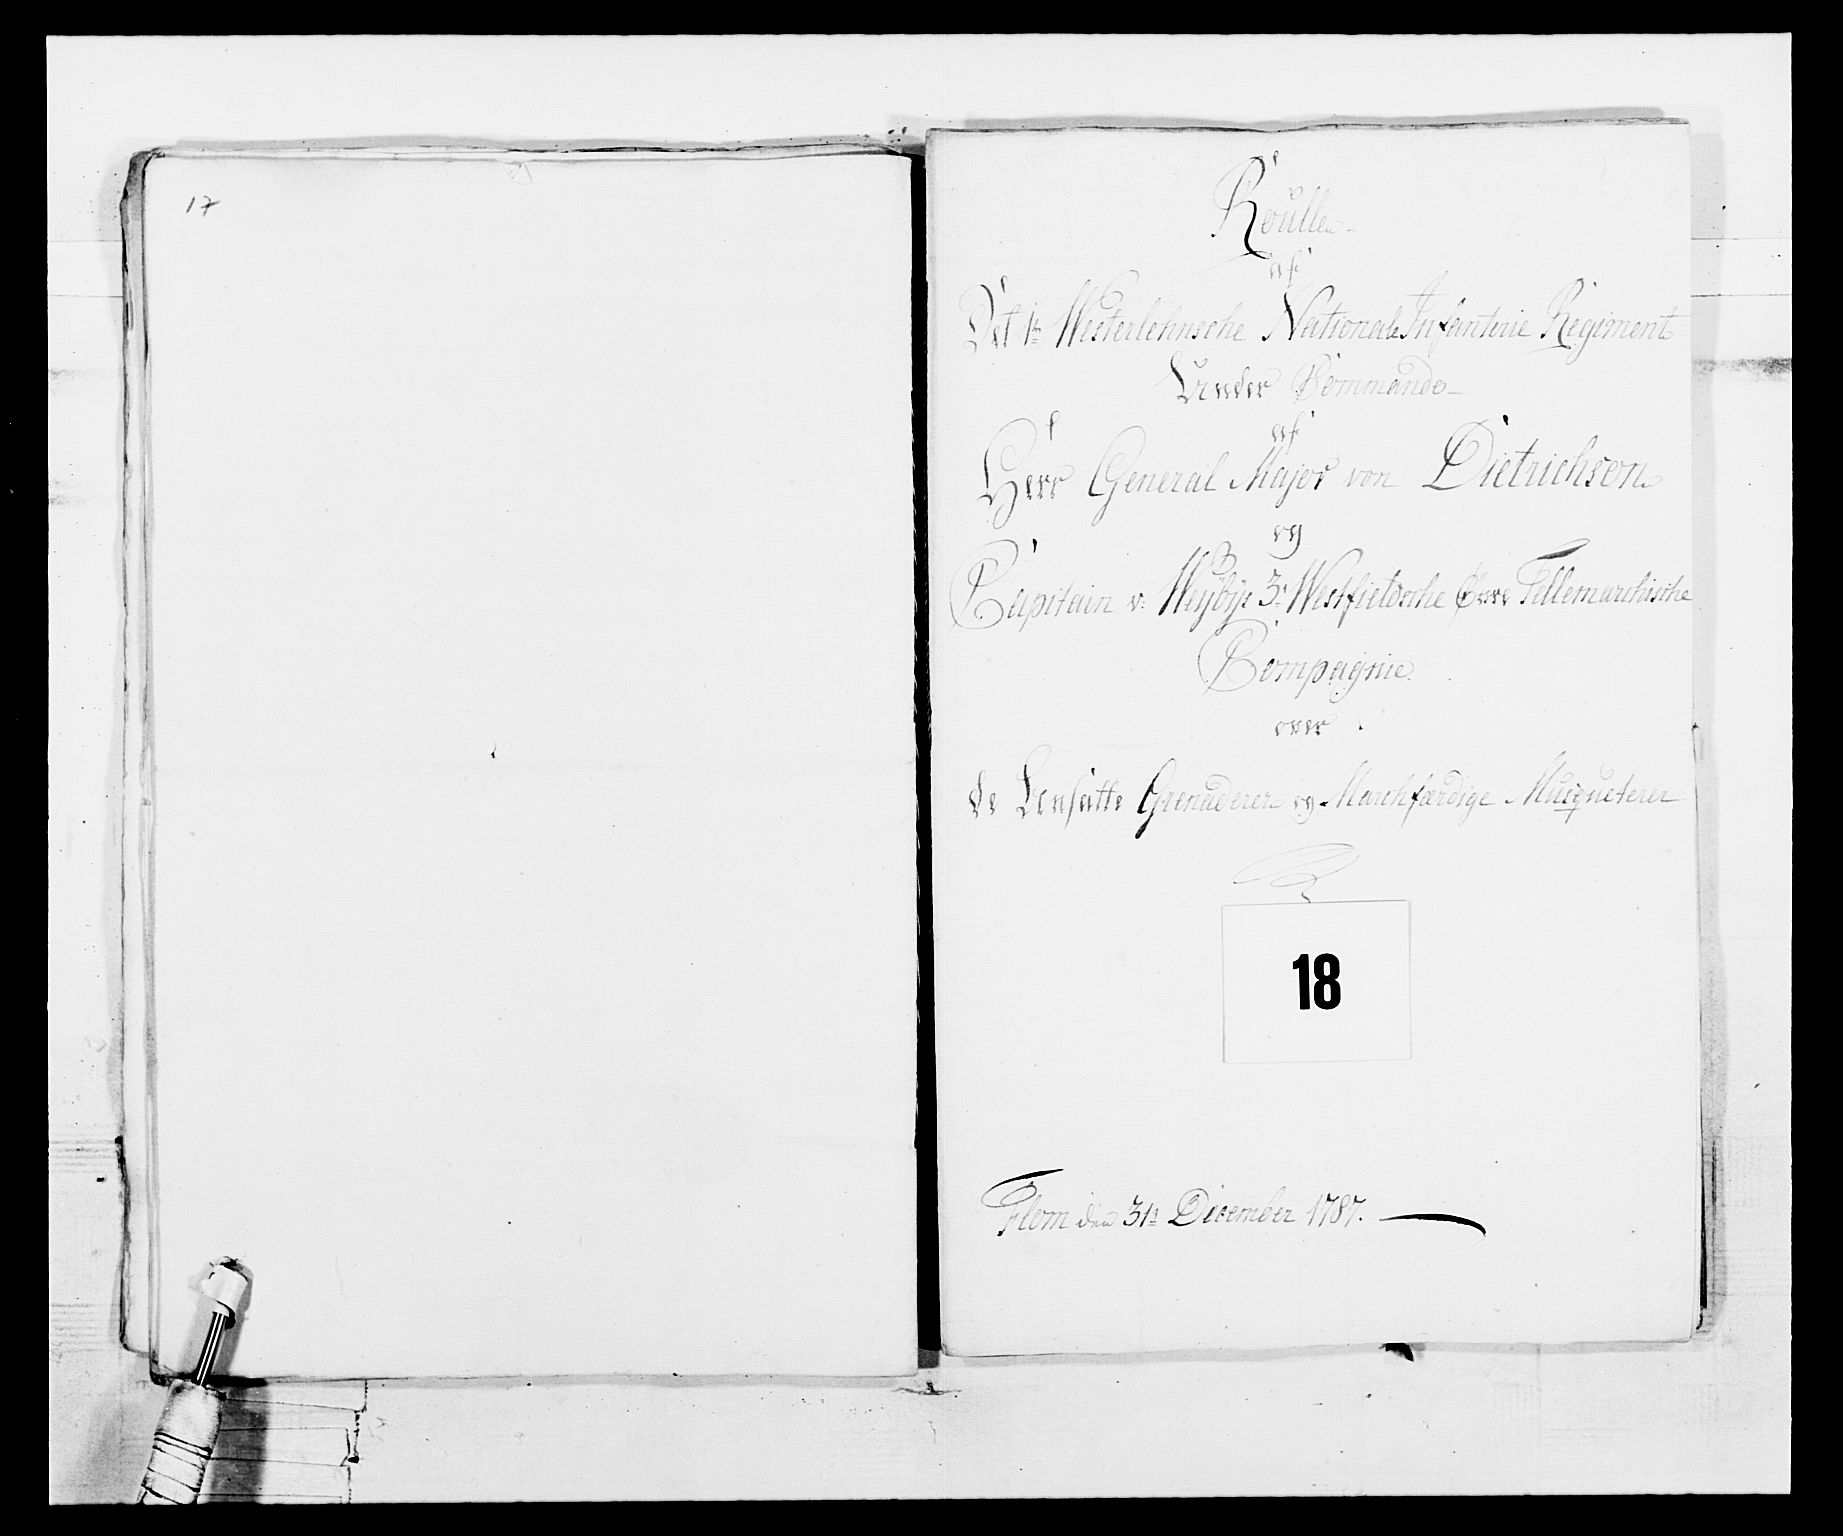 17
Roulle
af
Det 1te Westerlehnsche Nationale Infanterie Regiment
Under Commando
af
Herr General Major von Dietrichson
og
Capitain v: Weybye 3die Westfieldsche Øvre Tellemarchische
Compagnie
over
de Ansatte Grenaderer og Marchfærdige Musqueterer
18
Flom den 31te December 1787.